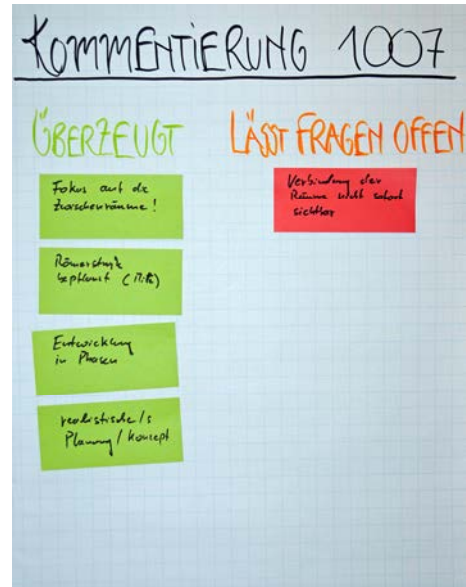 KOMMENTIERUNG 1007
ÜBERZEUGT
Fokus auf die
Zwischenräume!
Römerstraße
bepflanzt (Mitte)
Entwicklung
in Phasen
realistische/s
Planung/Konzept
LÄSST FRAGEN OFFEN
Verbindung der
Räume nicht sofort
sichtbar